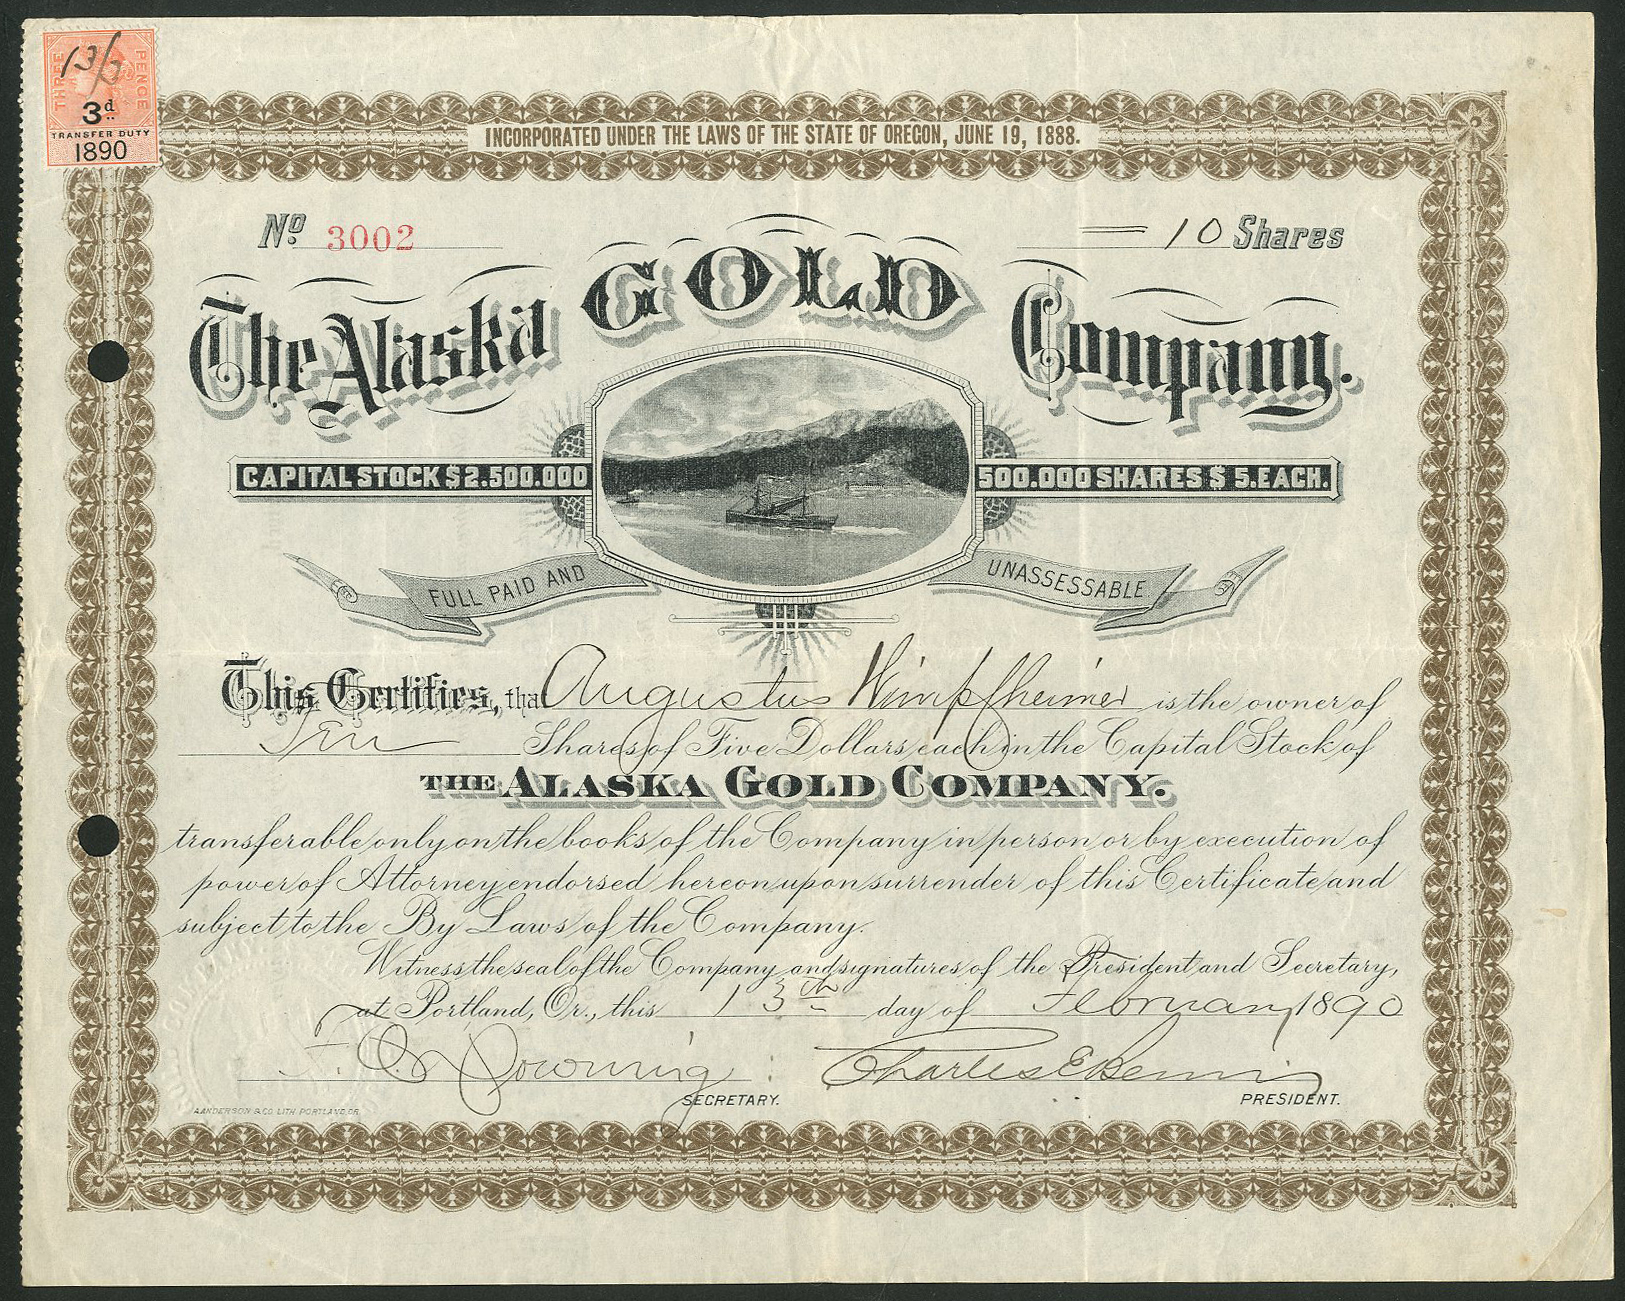 13/2
THREE PENCE
3d
TRANSFER DUTY
1890
INCORPORATED UNDER THE LAWS OF THE STATE OF OREGON, JUNE 19, 1888.
No. 3002
10 Shares
The Alaska GOLD Company.
CAPITAL STOCK $2.500.000
500.000 SHARES $5.EACH.
FULL PAID AND UNASSESSABLE
This Certifies, that Augustus Wimpfheimer is the owner of
Ten Shares of Five Dollars each in the Capital Stock of
THE ALASKA GOLD COMPANY.
transferable only on the books of the Company in person or by execution of
power of Attorney endorsed hereon upon surrender of this Certificate and
subject to the By Laws of the Company.
Witness the seal of the Company and signatures of the President and Secretary,
at Portland, Or., this 13th day of February 1890
Downing Charles E
SECRETARY. PRESIDENT.
A.ANDERSON & CO. LITH. PORTLAND, OR.